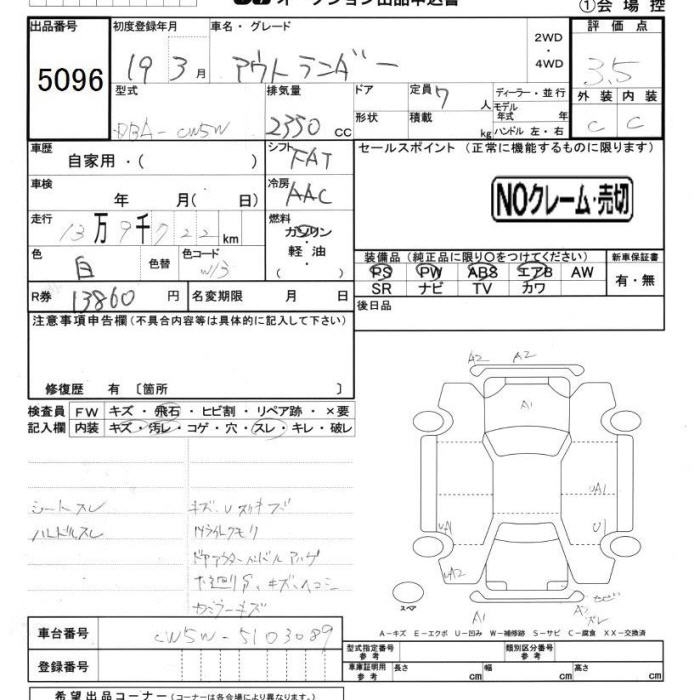 オークション出品申込書
①会場控
出品番号
5096
初度登録年月
19 3月
車名・グレード
アウトランダー
2WD
・
4WD
評価点
3.5
外装 内装
C C
型式
DBA-CW5W
排気量
2350 CC
ドア
形状
定員 7 人
積載 kg
ディーラー・並行
モデル年式 年
ハンドル 左・右
車歴
自家用・( )
シフト
FAT
セールスポイント (正常に機能するものに限ります)
NOクレーム・売切
車検
年 月( 日)
冷房
AAC
走行
13万9千722km
燃料
ガソリン
・
軽油
( )
色
白
色替
色コード
W13
装備品 (純正品に限り○をつけてください)
PS PW ABS エアB AW
SR ナビ TV カワ
新車保証書
有・無
R券
13860円
名変期限 月 日
後日品
注意事項申告欄 (不具合内容等は具体的に記入して下さい)
修復歴 有 〔箇所 〕
検査員 FW キズ・飛石・ヒビ割・リペア跡・×要
記入欄 内装 キズ・汚レ・コゲ・穴・スレ・キレ・破レ
シートスレ
ハンドルスレ
キズ、Uスリキズ
Hライトクモリ
A2 A2
A1
UA1
UA1 U1
UA2
A1
スペア
A-キズ E-エクボ U-凹み W-補修跡 S-サビ C-腐食 XX-交換済
車台番号
CW5W-5103089
登録番号
型式指定番号 参考
類別区分番号 参考
車庫証明用 参考
長さ cm
幅 cm
高さ cm
希望出品コーナー (コーナーは各会場により異なります。)